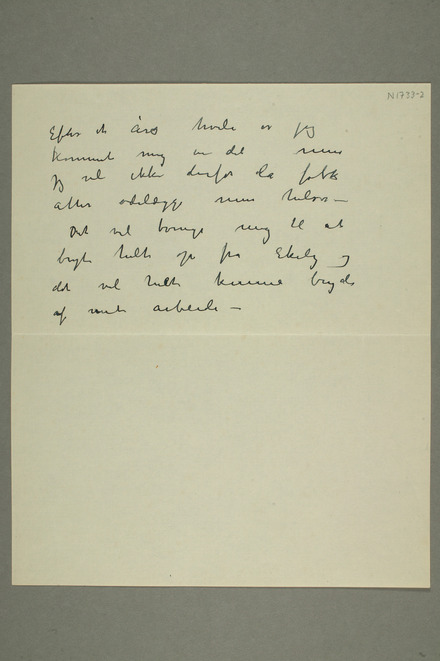 N 1733-2
Efter et års hvile er jeg
kommet mig en del men
jeg vil ikke derfor la folk
atter ødelægge min helse –
Det vil tvinge mig til at
bryte helt op fra Ekely og
det vil helt kunne bryde
af mit arbeide –